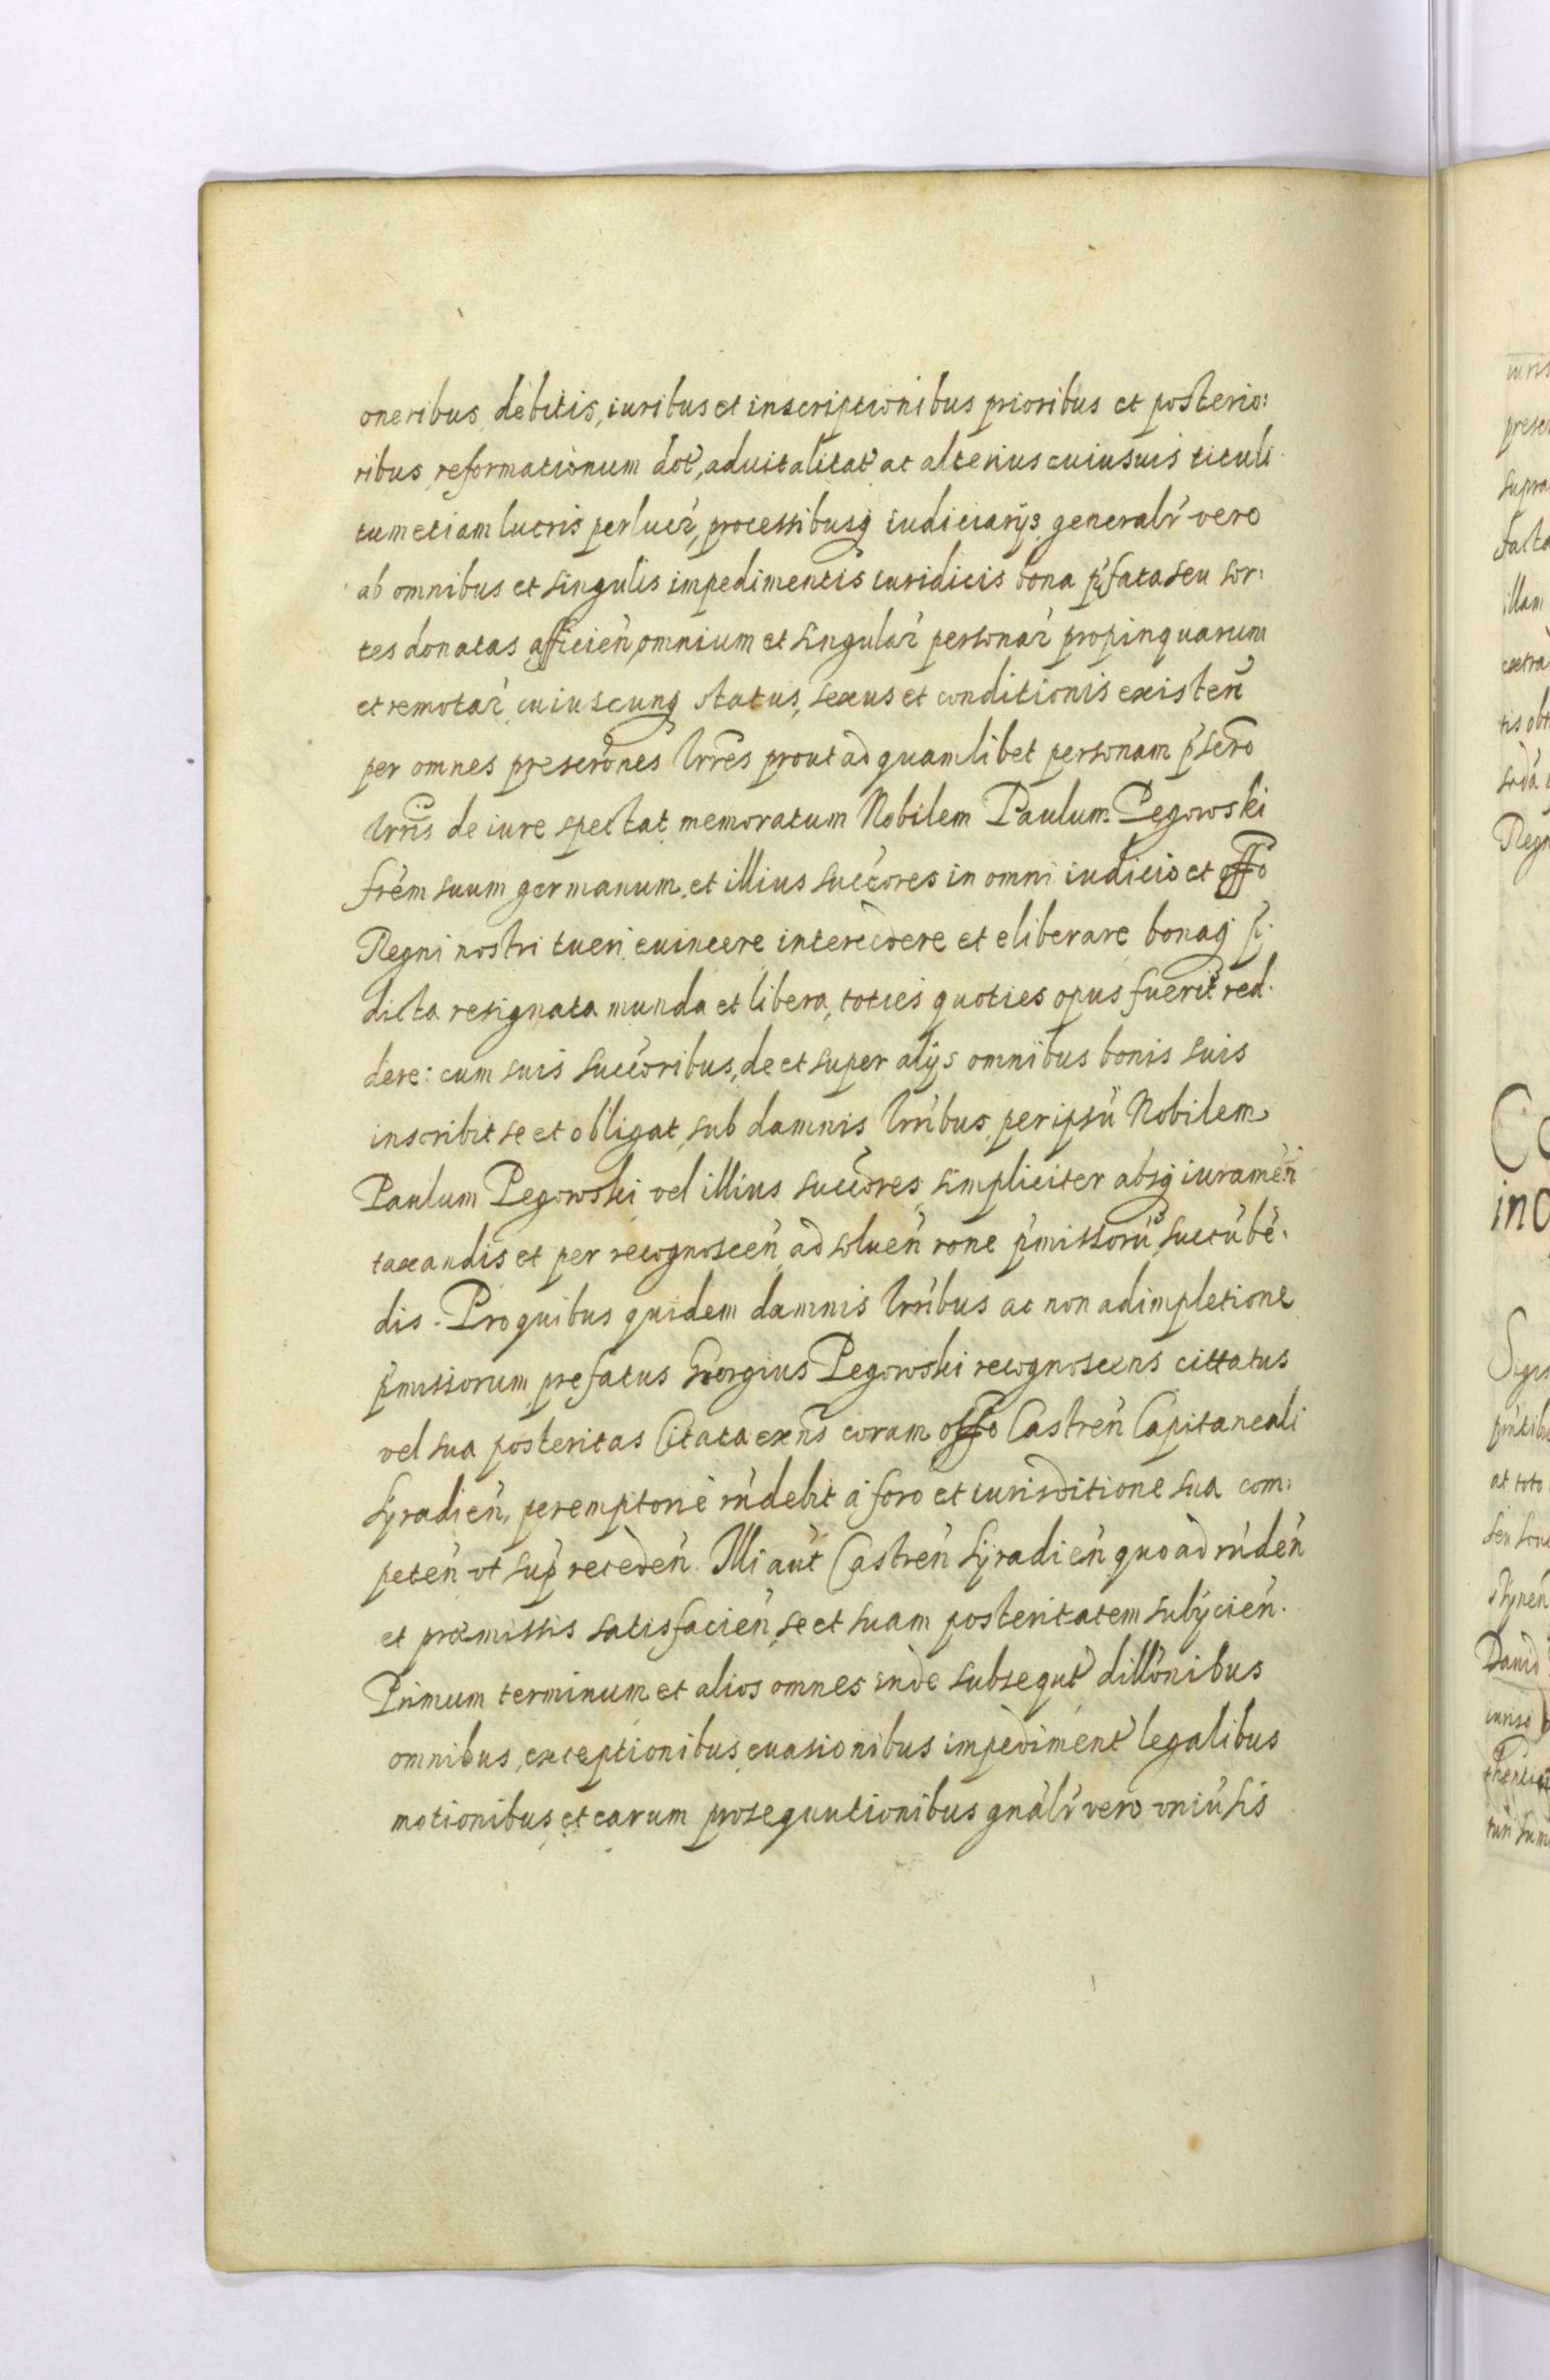 oneribus, debitis, iuribus et inscriptionibus prioribus et posterio:
ribus, reformationum dot, aduitalitat ac alterius cuiusuis tituli
tum etiam lucris perlucr, processibusq iudiciarijs, generalr vero
ab omnibus et singulis impedimentis iuridicis bona pfata seu sor:
tes donatas afficien, omnium et singular personar propinquarum
et remotar, cuiuscunq status, sexus et conditionis existen
per omnes prescrones trres prout ad quamlibet personam pscro
trris de iure spectat memoratum Nobilem Paulum Pegowski
frem suum germanum, et illius succores in omni iudicio et offo
Regni nostri tueri, euincere intercedere et eliberare, bonaq p:
dicta resignata munda et libera, toties quoties opus fuerit red:
dere: cum suis succoribus, de et super alijs omnibus bonis suis
inscribit se et obligat, sub damnis trribus, per ipsu Nobilem
Paulum Pegowski vel illius succores, simpliciter absq iuramen
taxandis et per recognoscen, ad soluen rone pmissoru, succube:
dis. Pro quibus quidem damnis trribus ac non adimpletione
pmissorum, prefatus Georgius Pegowski recognoscens cittatus
vel sua posteritas Citata exns coram offo Castren Capitaneali
Syradien, peremptorie rndebit a foro et iurisditione sua com:
peten vt sup receden. Illi aut Castren Syradien quo ad rnden
et præmissis satisfacien, se et suam posteritatem subijcien.
Primum terminum et alios omnes inde subsequt dillonibus
omnibus, exceptionibus, euasionibus impediment legalibus
motionibus, et earum prosequutionibus gnalr vero vniusis